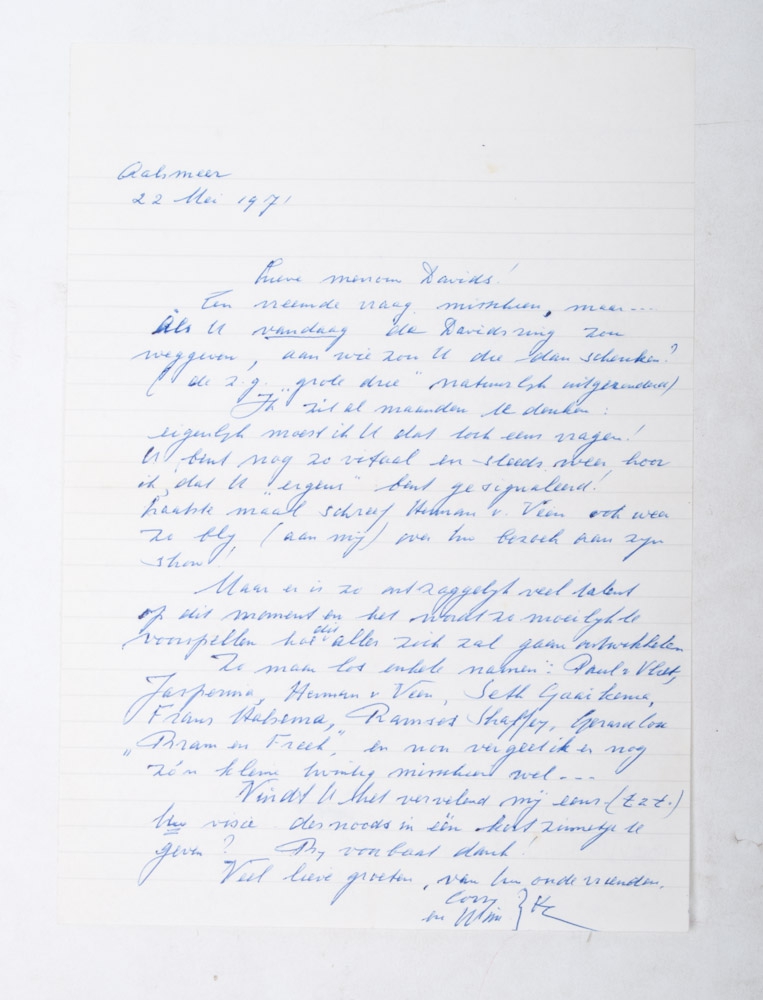 Aalsmeer
22 Mei 1971
Lieve mevrouw Davids!
Een vreemde vraag misschien, maar---
Als U vandaag de Davidsring zou
weggeven, aan wie zou U die dan schenken?
(de z.g. "grote drie" natuurlijk uitgezonderd)
Ik zit al maanden te denken:
eigenlijk moest ik U dat toch eens vragen!
U bent nog zo vitaal en steeds weer hoor
ik, dat U "ergens" bent gesignaleerd!
Laatste maal schreef Herman v. Veen ook weer
zo blij (aan mij) over Uw bezoek aan zijn
show!
Maar er is zo ontzaggelijk veel talent
op dit moment en het wordt zo moeilijk te
voorspellen hoe dit alles zich zal gaan ontwikkelen
Zo maar los enkele namen: Paul v Vliet,
Jasperina, Herman v Veen, Seth Gaaikema,
Frans Halsema, Ramses Shaffy, Gerard Cox
"Bram en Freek", en nou vergeet ik er nog
zo'n kleine twintig misschien wel ---
Vindt U het vervelend mij eens (t.z.t.)
Uw visie desnoods in één kort zinnetje te
geven? Bij voorbaat dank!
Veel lieve groeten, van Uw oude vrienden,
Corry
en Wim